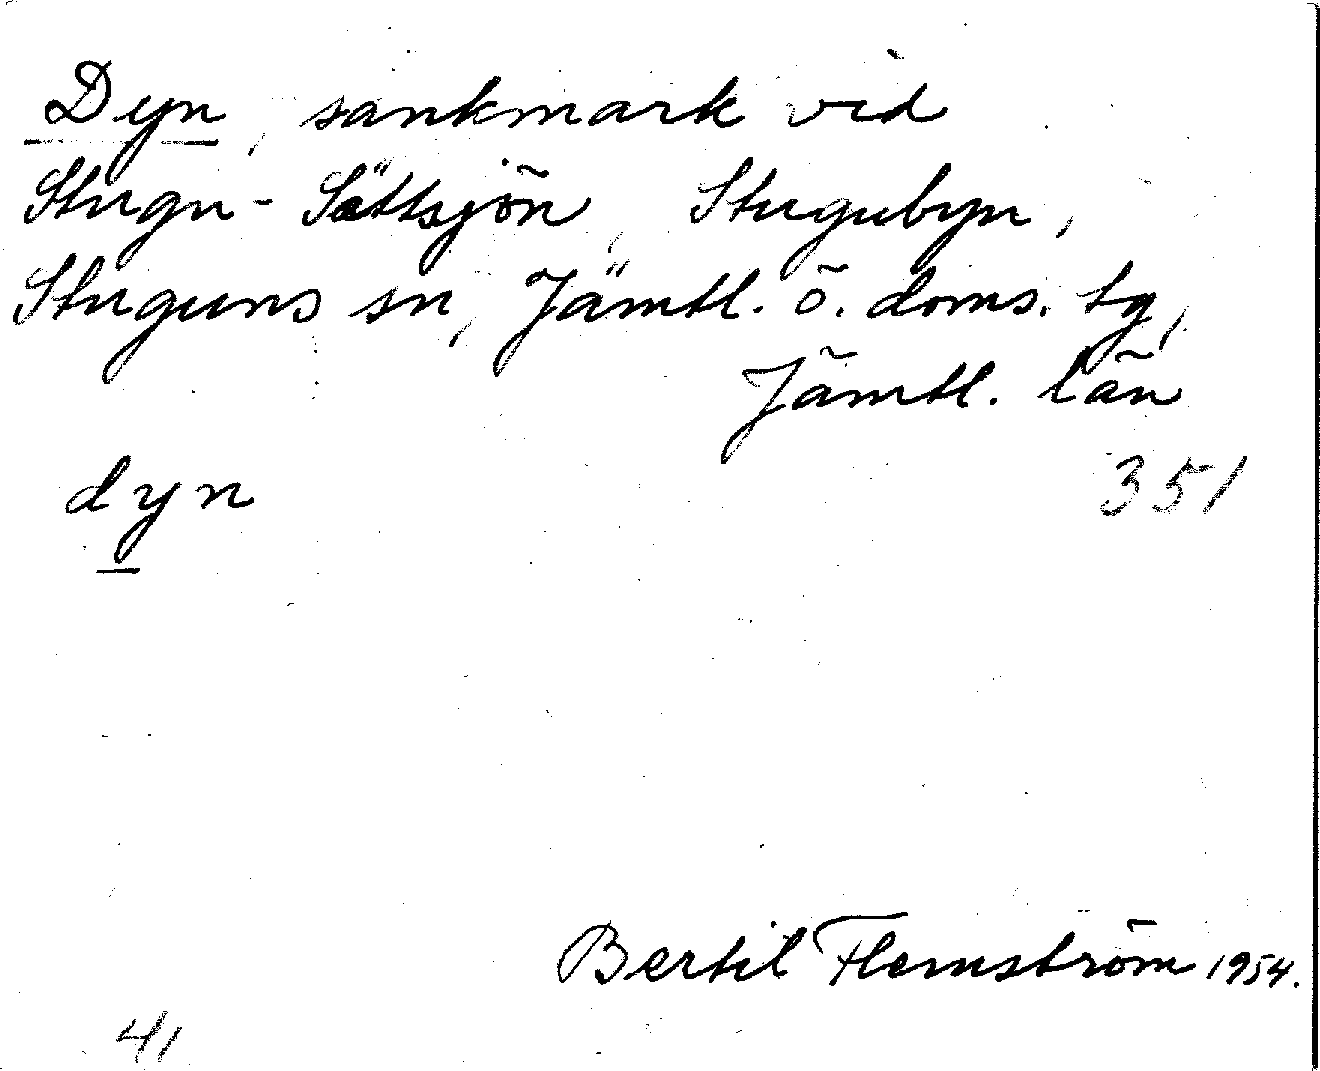 Dyn, sankmark vid
Stugu-Sättsjön, Stugubyn,
Stuguns sn, Jämtl. ö. doms. tg,
Jämtl. län
dyn
351
Bertil Flemström 1954.
41